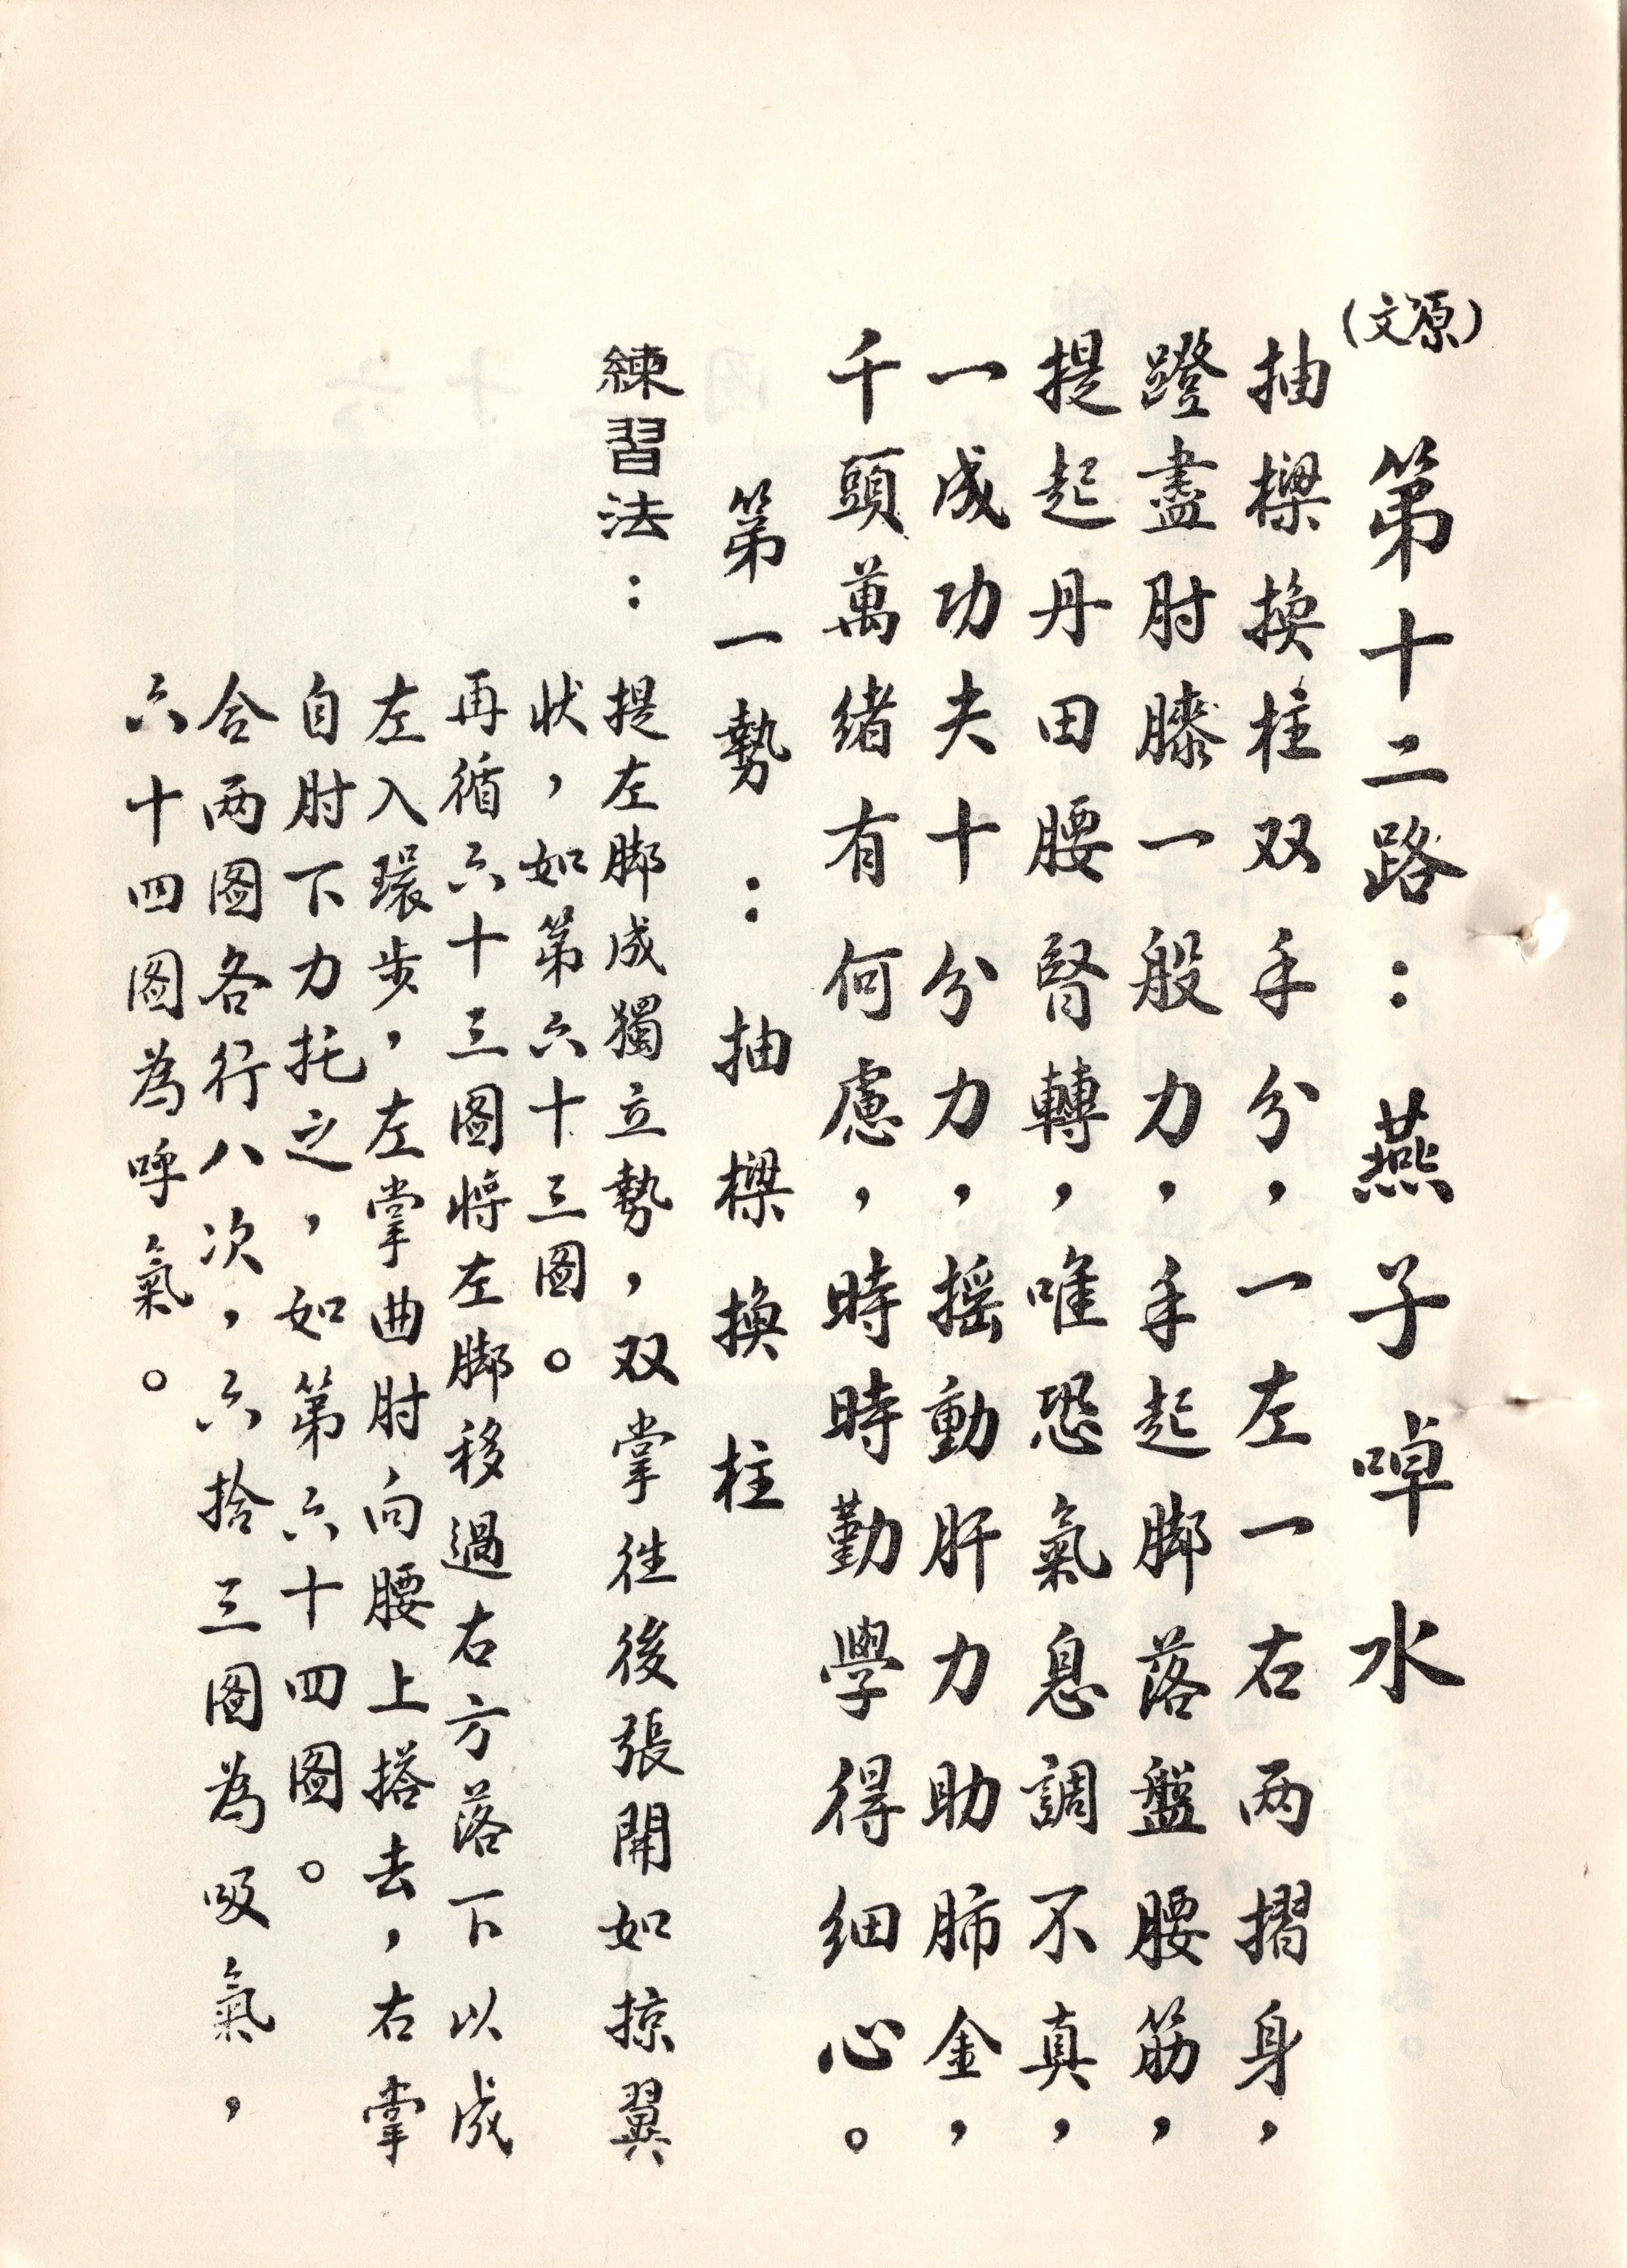 第十二路：燕子啅水
（原文）
抽樑換柱双手分，一左一右两摺身，
蹬盡肘膝一般力，手起脚落盤腰筋，
提起丹田腰腎轉，唯恐氣息調不真，
一成功夫十分力，摇動肝力助肺金，
千頭萬緒有何慮，時時勤學得細心。
第一勢：抽樑換柱
練習法：提左脚成獨立勢，双掌徃後張開如掠翼
状，如第六十三图。
再循六十三图將左脚移過右方落下以成
左入環步，左掌曲肘向腰上搭去，右掌
自肘下力托之，如第六十四图。
合两图各行八次，六拾三图為吸氣，
六十四图為呼氣。